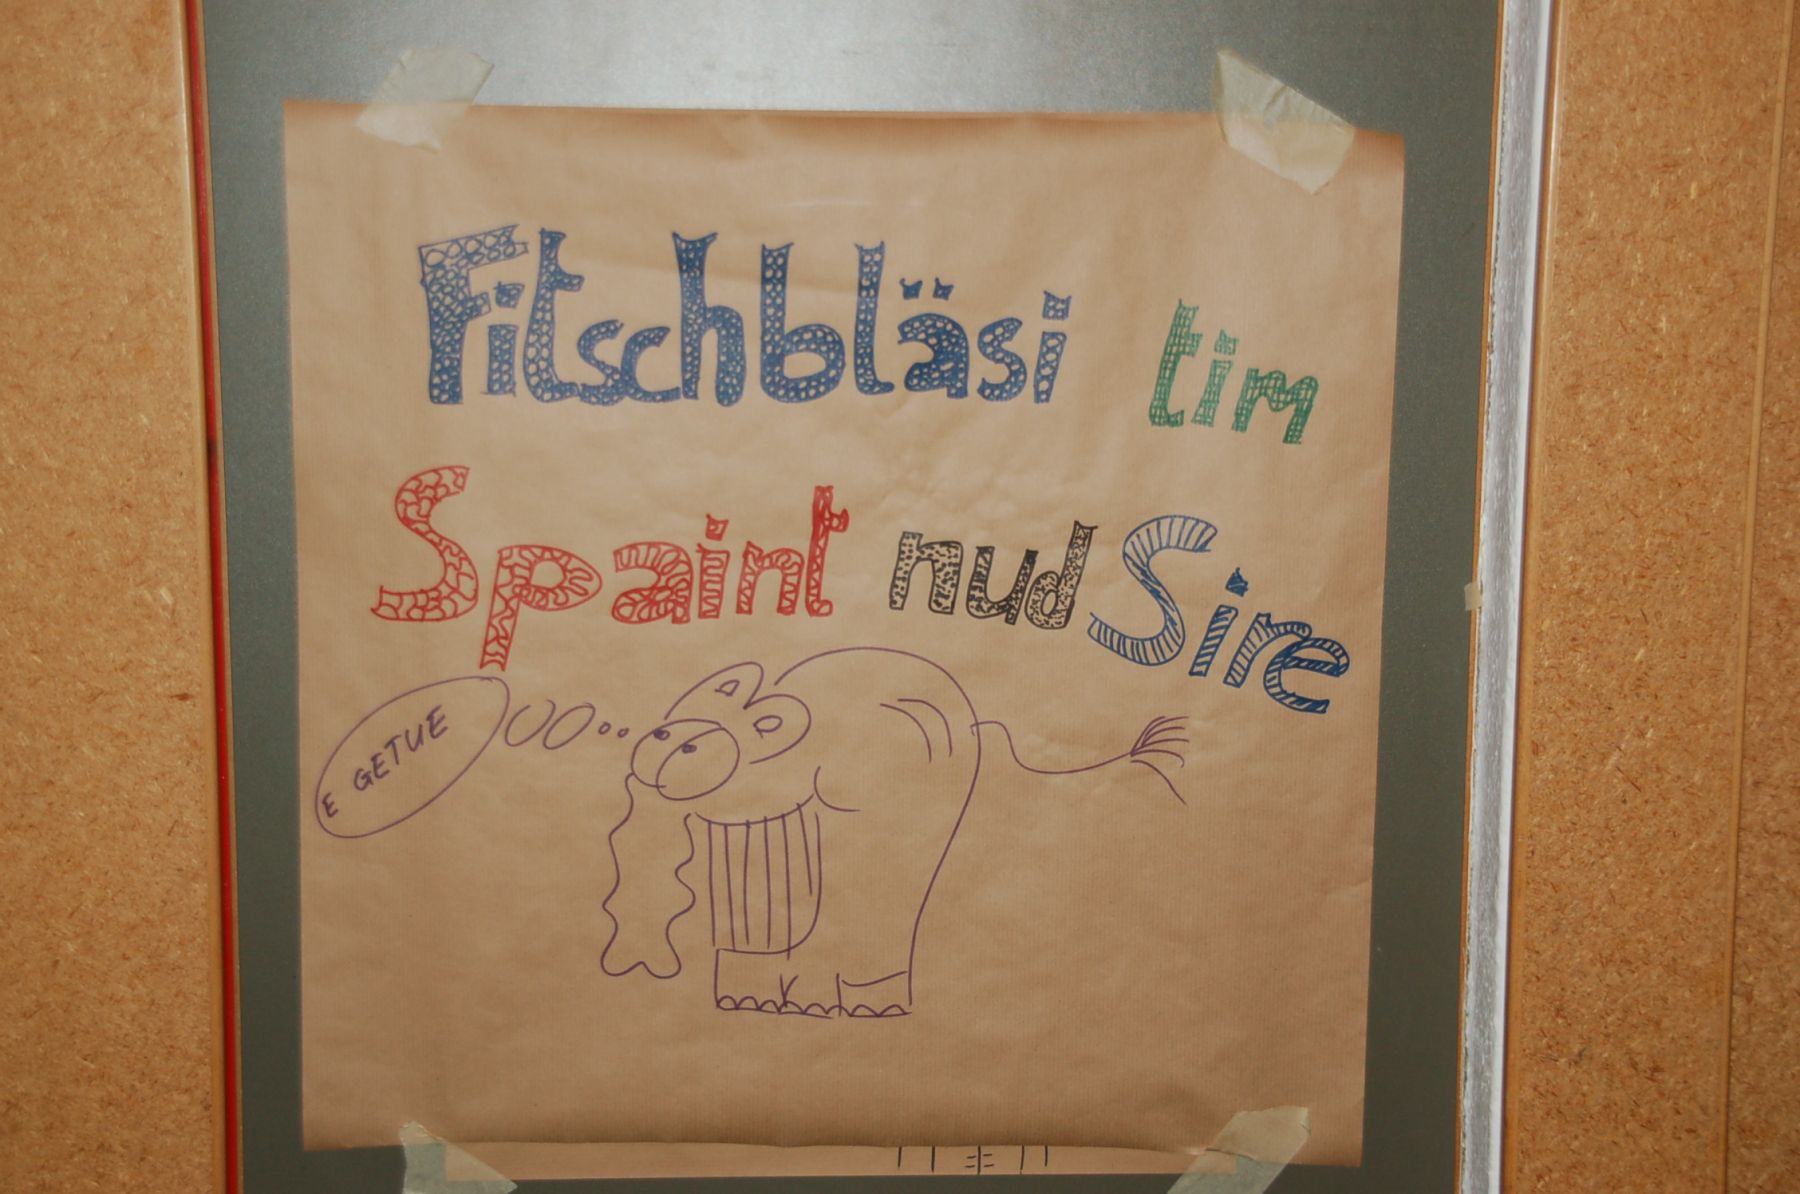 Fitschbläsi tim
Spaint nud Sire
E GETUE